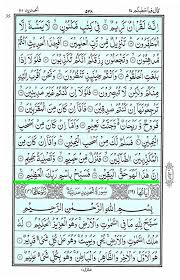 اِنَّهٗ لَقُرْاٰنٌ كَرِيْمٌ فِيْ كِتٰبٍ مَّكْنُوْنٍ لَّا يَمَسُّهٗٓ اِلَّا
الْمُطَهَّرُوْنَ تَنْزِيْلٌ مِّنْ رَّبِّ الْعٰلَمِيْنَ اَفَبِهٰذَا الْحَدِيْثِ اَنْتُمْ
مُّدْهِنُوْنَ وَتَجْعَلُوْنَ رِزْقَكُمْ اَنَّكُمْ تُكَذِّبُوْنَ فَلَوْلَآ اِذَا
بَلَغَتِ الْحُلْقُوْمَ وَاَنْتُمْ حِيْنَئِذٍ تَنْظُرُوْنَ وَنَحْنُ اَقْرَبُ
اِلَيْهِ مِنْكُمْ وَلٰكِنْ لَّا تُبْصِرُوْنَ فَلَوْلَآ اِنْ كُنْتُمْ غَيْرَ
مَدِيْنِيْنَ تَرْجِعُوْنَهَآ اِنْ كُنْتُمْ صٰدِقِيْنَ فَاَمَّآ اِنْ كَانَ مِنَ الْمُقَرَّبِيْنَ
فَرَوْحٌ وَّرَيْحَانٌ وَّجَنَّتُ نَعِيْمٍ وَاَمَّآ اِنْ كَانَ مِنْ اَصْحٰبِ
الْيَمِيْنِ فَسَلٰمٌ لَّكَ مِنْ اَصْحٰبِ الْيَمِيْنِ وَاَمَّآ اِنْ كَانَ مِنَ
الْمُكَذِّبِيْنَ الضَّآلِّيْنَ فَنُزُلٌ مِّنْ حَمِيْمٍ وَّتَصْلِيَةُ جَحِيْمٍ
اِنَّ هٰذَا لَهُوَ حَقُّ الْيَقِيْنِ فَسَبِّحْ بِاسْمِ رَبِّكَ الْعَظِيْمِ
سُوْرَةُ الْحَدِيْدِ مَدَنِيَّةٌ
بِسْمِ اللّٰهِ الرَّحْمٰنِ الرَّحِيْمِ
سَبَّحَ لِلّٰهِ مَا فِي السَّمٰوٰتِ وَالْاَرْضِ وَهُوَ الْعَزِيْزُ الْحَكِيْمُ